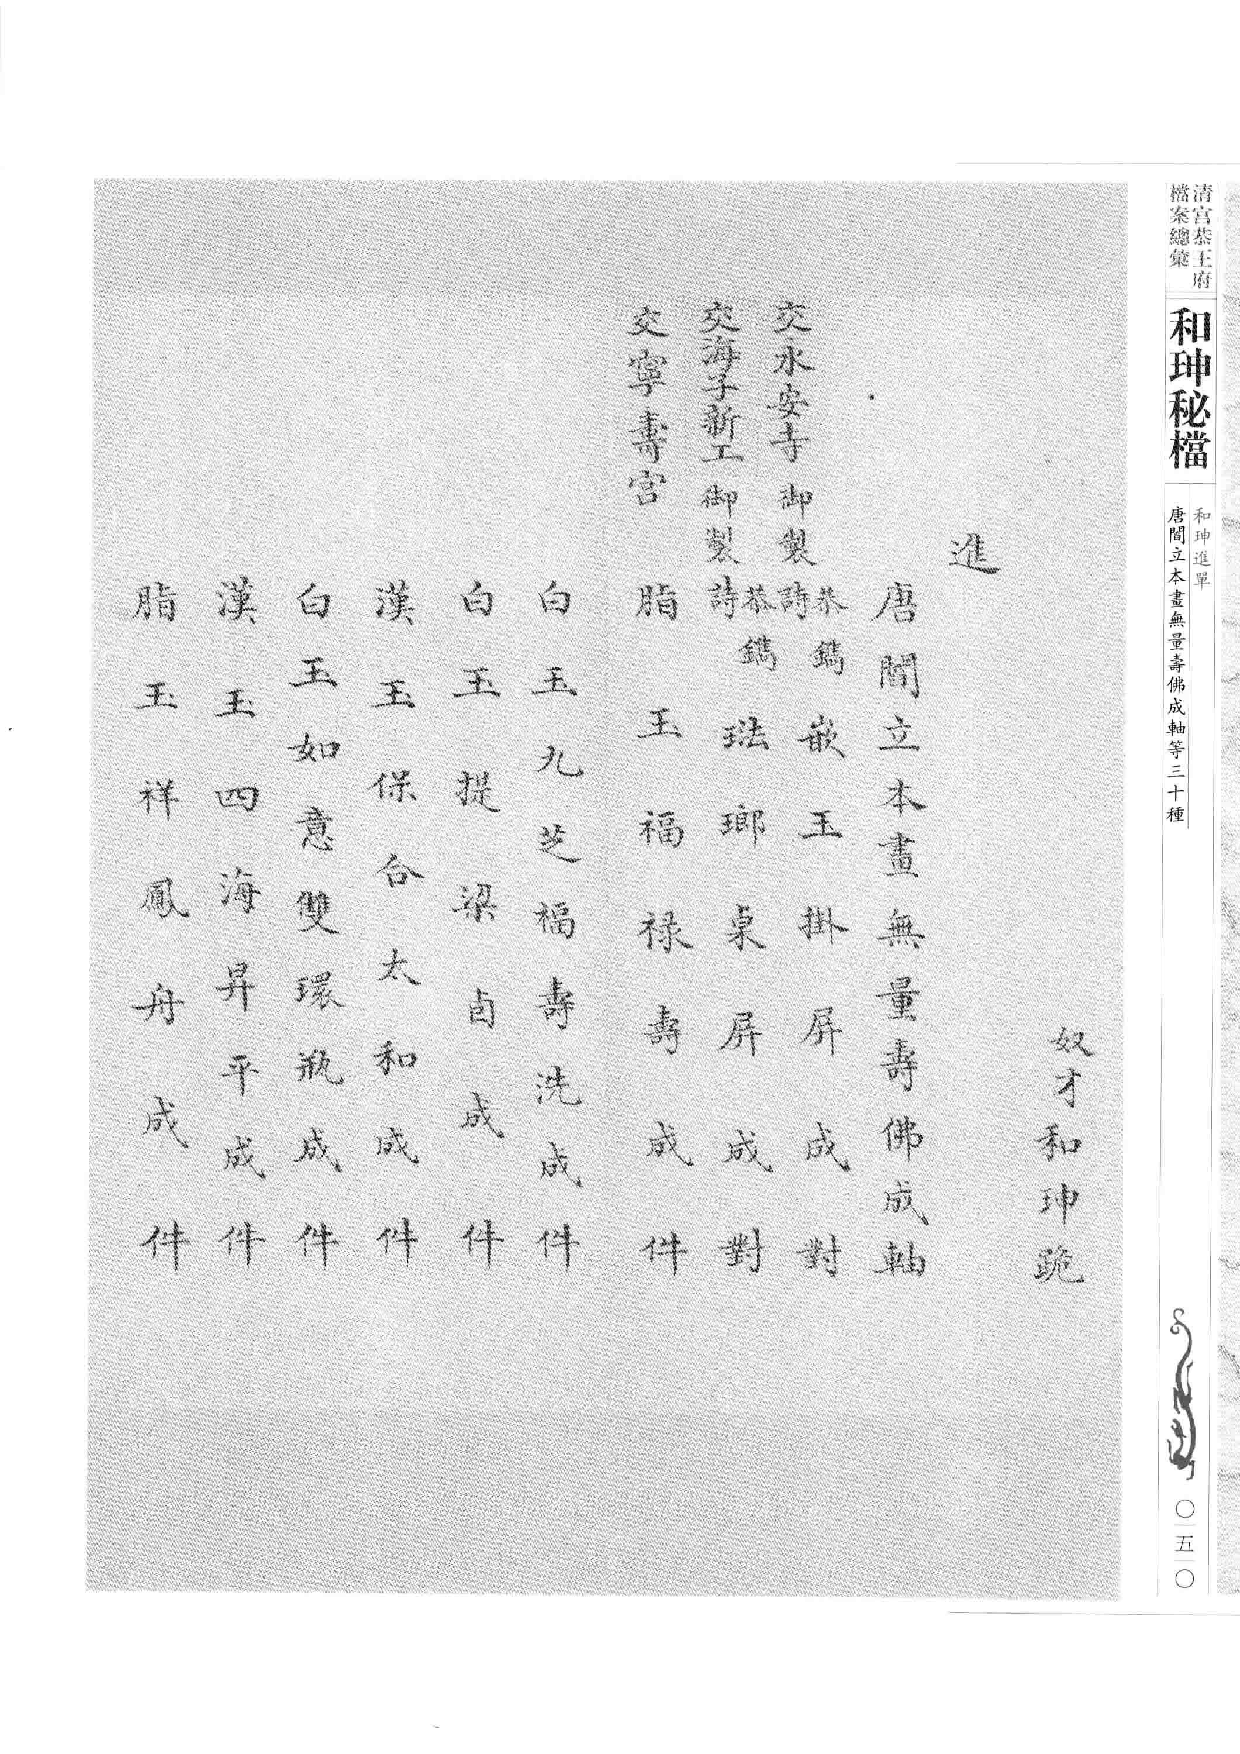 清宮恭王府
檔案總彙
和珅秘檔
和珅進單
唐閻立本畫無量壽佛成軸等三十種
〇五〇
奴才和珅跪
進
唐閻立本畫無量壽佛成軸
交永安寺 御製詩恭鐫嵌玉掛屏成對
交海子新工 御製詩恭鐫琺瑯桌屏成對
交寧壽宮 脂玉福祿壽成件
白玉九芝福壽洗成件
白玉提梁卣成件
漢玉保合太和成件
白玉如意雙環瓶成件
漢玉四海昇平成件
脂玉祥鳳舟成件